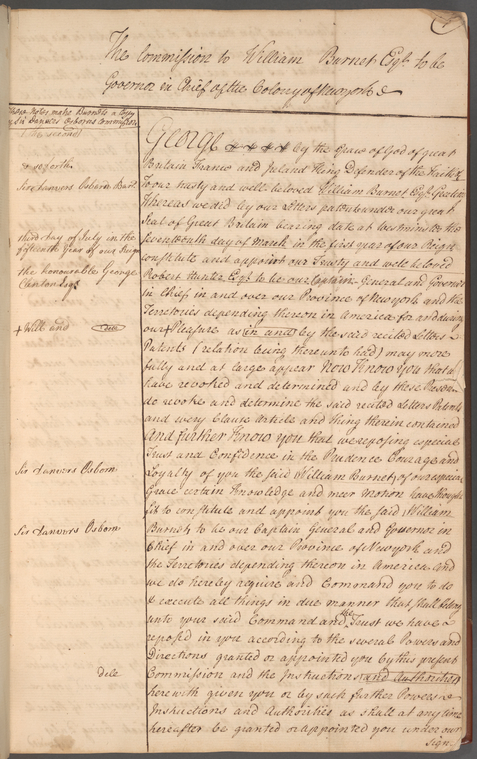 The Commission to William Burnet Esqr. to be
Governor in Chief of the Colony of New york &
These notes make Burnets a Copy
of Sir Danvers Osborns Commission
the second
& so forth
Sir Danvers Osborn Bart.
third day of July in the
fifteenth Year of our Reign
the honourable George
Clinton Esqr.
+ Will and dele
Sir Danvers Osborn
Sir Danvers Osborn
dele
George by the Grace of God of great
Britain France and Ireland King Defender of the Faith &
To our trusty and well beloved William Burnet Esqr. Greeting
Whereas we did by our Letters patent under our great
Seal of Great Britain bearing date at Westminster the
Seventeenth day of March in the first year of our Reign
constitute and appoint our Trusty and well beloved
Robert Hunter Esqr. to be our Captain General and Governor
in Chief in and over our Province of New york and the
Territories depending thereon in America for and during
our + Pleasure as in and by the said recited Letters
Patents (relation being thereunto had) may more
fully and at large appear Now Know you that we
have revoked and determined and by these Presents
do revoke and determine the said recited Letters Patents
and every Clause Article and thing therein contained
And further Know you that we reposing especial
Trust and Confidence in the Prudence Courage and
Loyalty of you the said William Burnet, of our especial
Grace certain Knowledge and meer Motion have thought
fit to constitute and appoint you the said William
Burnet, to be our Captain General and Governor in
Chief in and over our Province of New york and
the Territories depending thereon in America And
we do hereby require and Command you to do
& execute all things in due manner that shall belong
unto your said Command and the Trust we have
reposed in you according to the several Powers and
Directions granted or appointed you by this present
Commission and the Instructions and Authorities
herewith given you or by such further Powers
Instructions and Authorities as shall at any time
hereafter be granted or appointed you under our
Sign